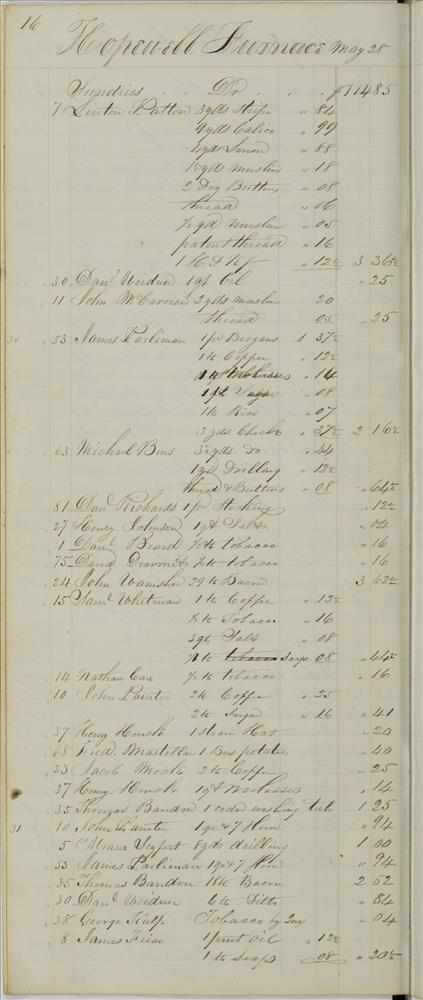 16
Hopewell Furnace May 28
Sundries Dr 11485
7 Linton Patton 3 yds Stripe " 84
9 yds Calico " 99
yd Linen " 88
yds muslin " 18
2 Doz Buttons " 08
thread " 06
½ yd muslin " 05
patent thread " 16
1 H & Kf " 12½ 3 36½
30 Danl Weidner 1 qt Oil " 25
11 John McCarrion 2 yds muslin 20
thread 05 " 25
30 53 James Parliman 1 pr Brogans 1 37½
1 lb Coffee " 12½
Molasses " 14
1 Sugar " 08
1 lb Rice " 07
3 yds Check " 37½ 2 16½
63 Michael Bins yds Do " 44
1 yd Drilling " 12½
thread & Buttons " 08 " 64½
81 Danl Richards 1 pr Stocking " 12½
27 Henry Johnson 1 qt Salt
1 Danl Beard ½ lb tobacco " 16
75 David ½ lb tobacco " 16
24 John Wamsher 29 lb Bacon 3 62½
15 Saml Whitman 1 lb Coffee " 12½
½ lb Tobacco " 16
2 qts Salt " 08
1 lb tobacco Soap 08 " 44½
14 Nathan Care ½ lb tobacco " 16
10 John Painter 2 lb Coffe " 25
2 lb Sugar " 16 " 41
37 Henry Houck 1 Straw Hat " 20
68 Fred Mosteller 1 Bus potatoes " 40
23 Jacob Mock 2 lb Coffee " 25
37 Henry Houck 1 qt Molasses " 14
35 Thomas Bandon 1 cedar washing tub 1 25
31 10 John Painter 1 qr & 7 Flour " 94
5 Seyfert 8 yds drilling 1 00
53 James Parliman 1 qr & 7 Flour " 94
35 Thomas Bandon 18 lb Bacon 2 52
30 Danl Weidner 6 lb Ditto " 84
38 George Kulp Tobacco by " 04
8 James Frier 1 pint oil " 12½
1 lb Soap 08 " 20½